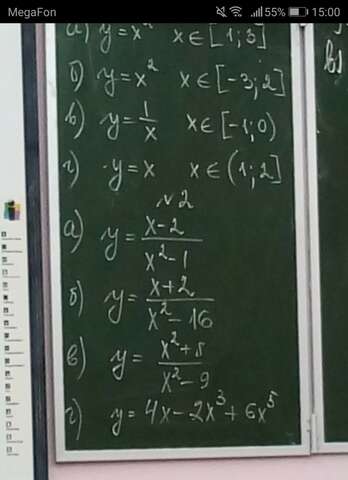 MegaFon 55% 15:00
а) y = x² x ∈ [1; 3]
б) y = x² x ∈ [-3; 2]
в) y = 1/x x ∈ [-1; 0)
г) y = x x ∈ (1; 2]
№2
а) y = (x-2)/(x²-1)
б) y = (x+2)/(x²-16)
в) y = (x²+8)/(x²-9)
г) y = 4x - 2x³ + 6x⁵